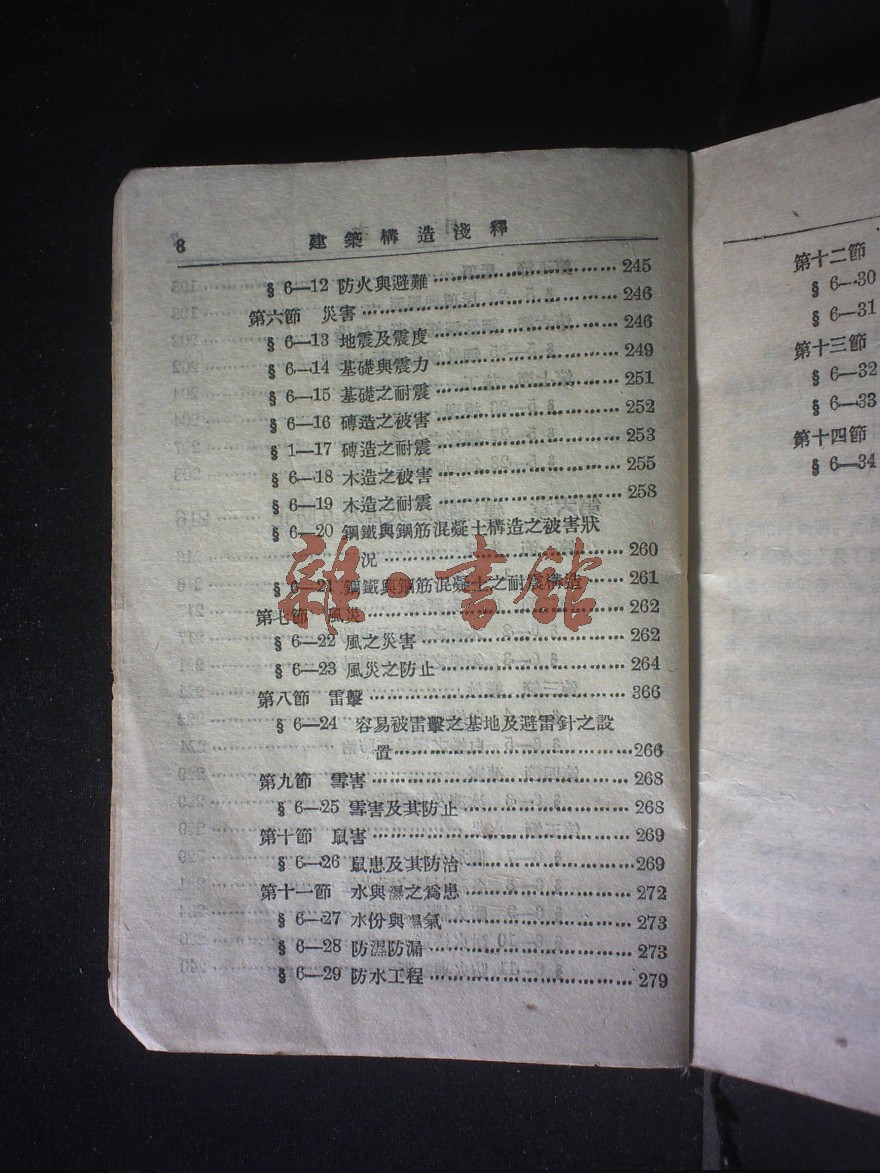 8 建築構造淺釋
§ 6—12 防火與避難 245
第六節 災害 246
§ 6—13 地震及震度 246
§ 6—14 基礎與震力 249
§ 6—15 基礎之耐震 251
§ 6—16 磚造之被害 252
§ 1—17 磚造之耐震 253
§ 6—18 木造之被害 255
§ 6—19 木造之耐震 258
§ 6—20 鋼鐵與鋼筋混凝土構造之被害狀
況 260
§ 6—21 鋼鐵與鋼筋混凝土之耐震構造 261
第七節 風災 262
§ 6—22 風之災害 262
§ 6—23 風災之防止 264
第八節 雷擊 366
§ 6—24 容易被雷擊之基地及避雷針之設
置 266
第九節 雪害 268
§ 6—25 雪害及其防止 268
第十節 鼠害 269
§ 6—26 鼠患及其防治 269
第十一節 水與濕之爲患 272
§ 6—27 水份與濕氣 273
§ 6—28 防濕防漏 273
§ 6—29 防水工程 279
雜·書館
第十二節
§ 6—30
§ 6—31
第十三節
§ 6—32
§ 6—33
第十四節
§ 6—34